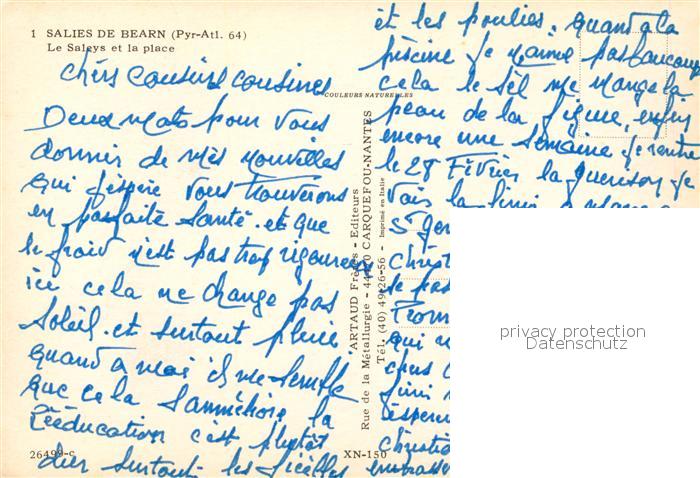 1 SALIES DE BEARN (Pyr-Atl. 64)
Le Saleys et la place
COULEURS NATURELLES
chers cousins cousines
Deux mots pour vous
donner de mes nouvelles
qui j'espère vous trouverons
en parfaite santé. et que
le froid n'est pas trop rigoureux
ici cela ne change pas
soleil. et surtout pluie
quand a moi il me semble
que cela s'amméliore la
Rééducation c'est plutôt
dur surtout les ficelles
et les poulies. quand a la
piscine je n'aime pas beaucoup
cela le sel me mange la
peau de la figure, enfin
encore une semaine je rentre
le 28 Février la guérison je
vais la fini a
St
christ
se pas
From
qui
chers
fini
espérer
christia
embrasse
ARTAUD Frères - Editeurs
Rue de la Métallurgie - 44470 CARQUEFOU-NANTES
Tél. (40) 49-26-56 - Imprimé en Italie
26499-c
XN-150
privacy protection
Datenschutz